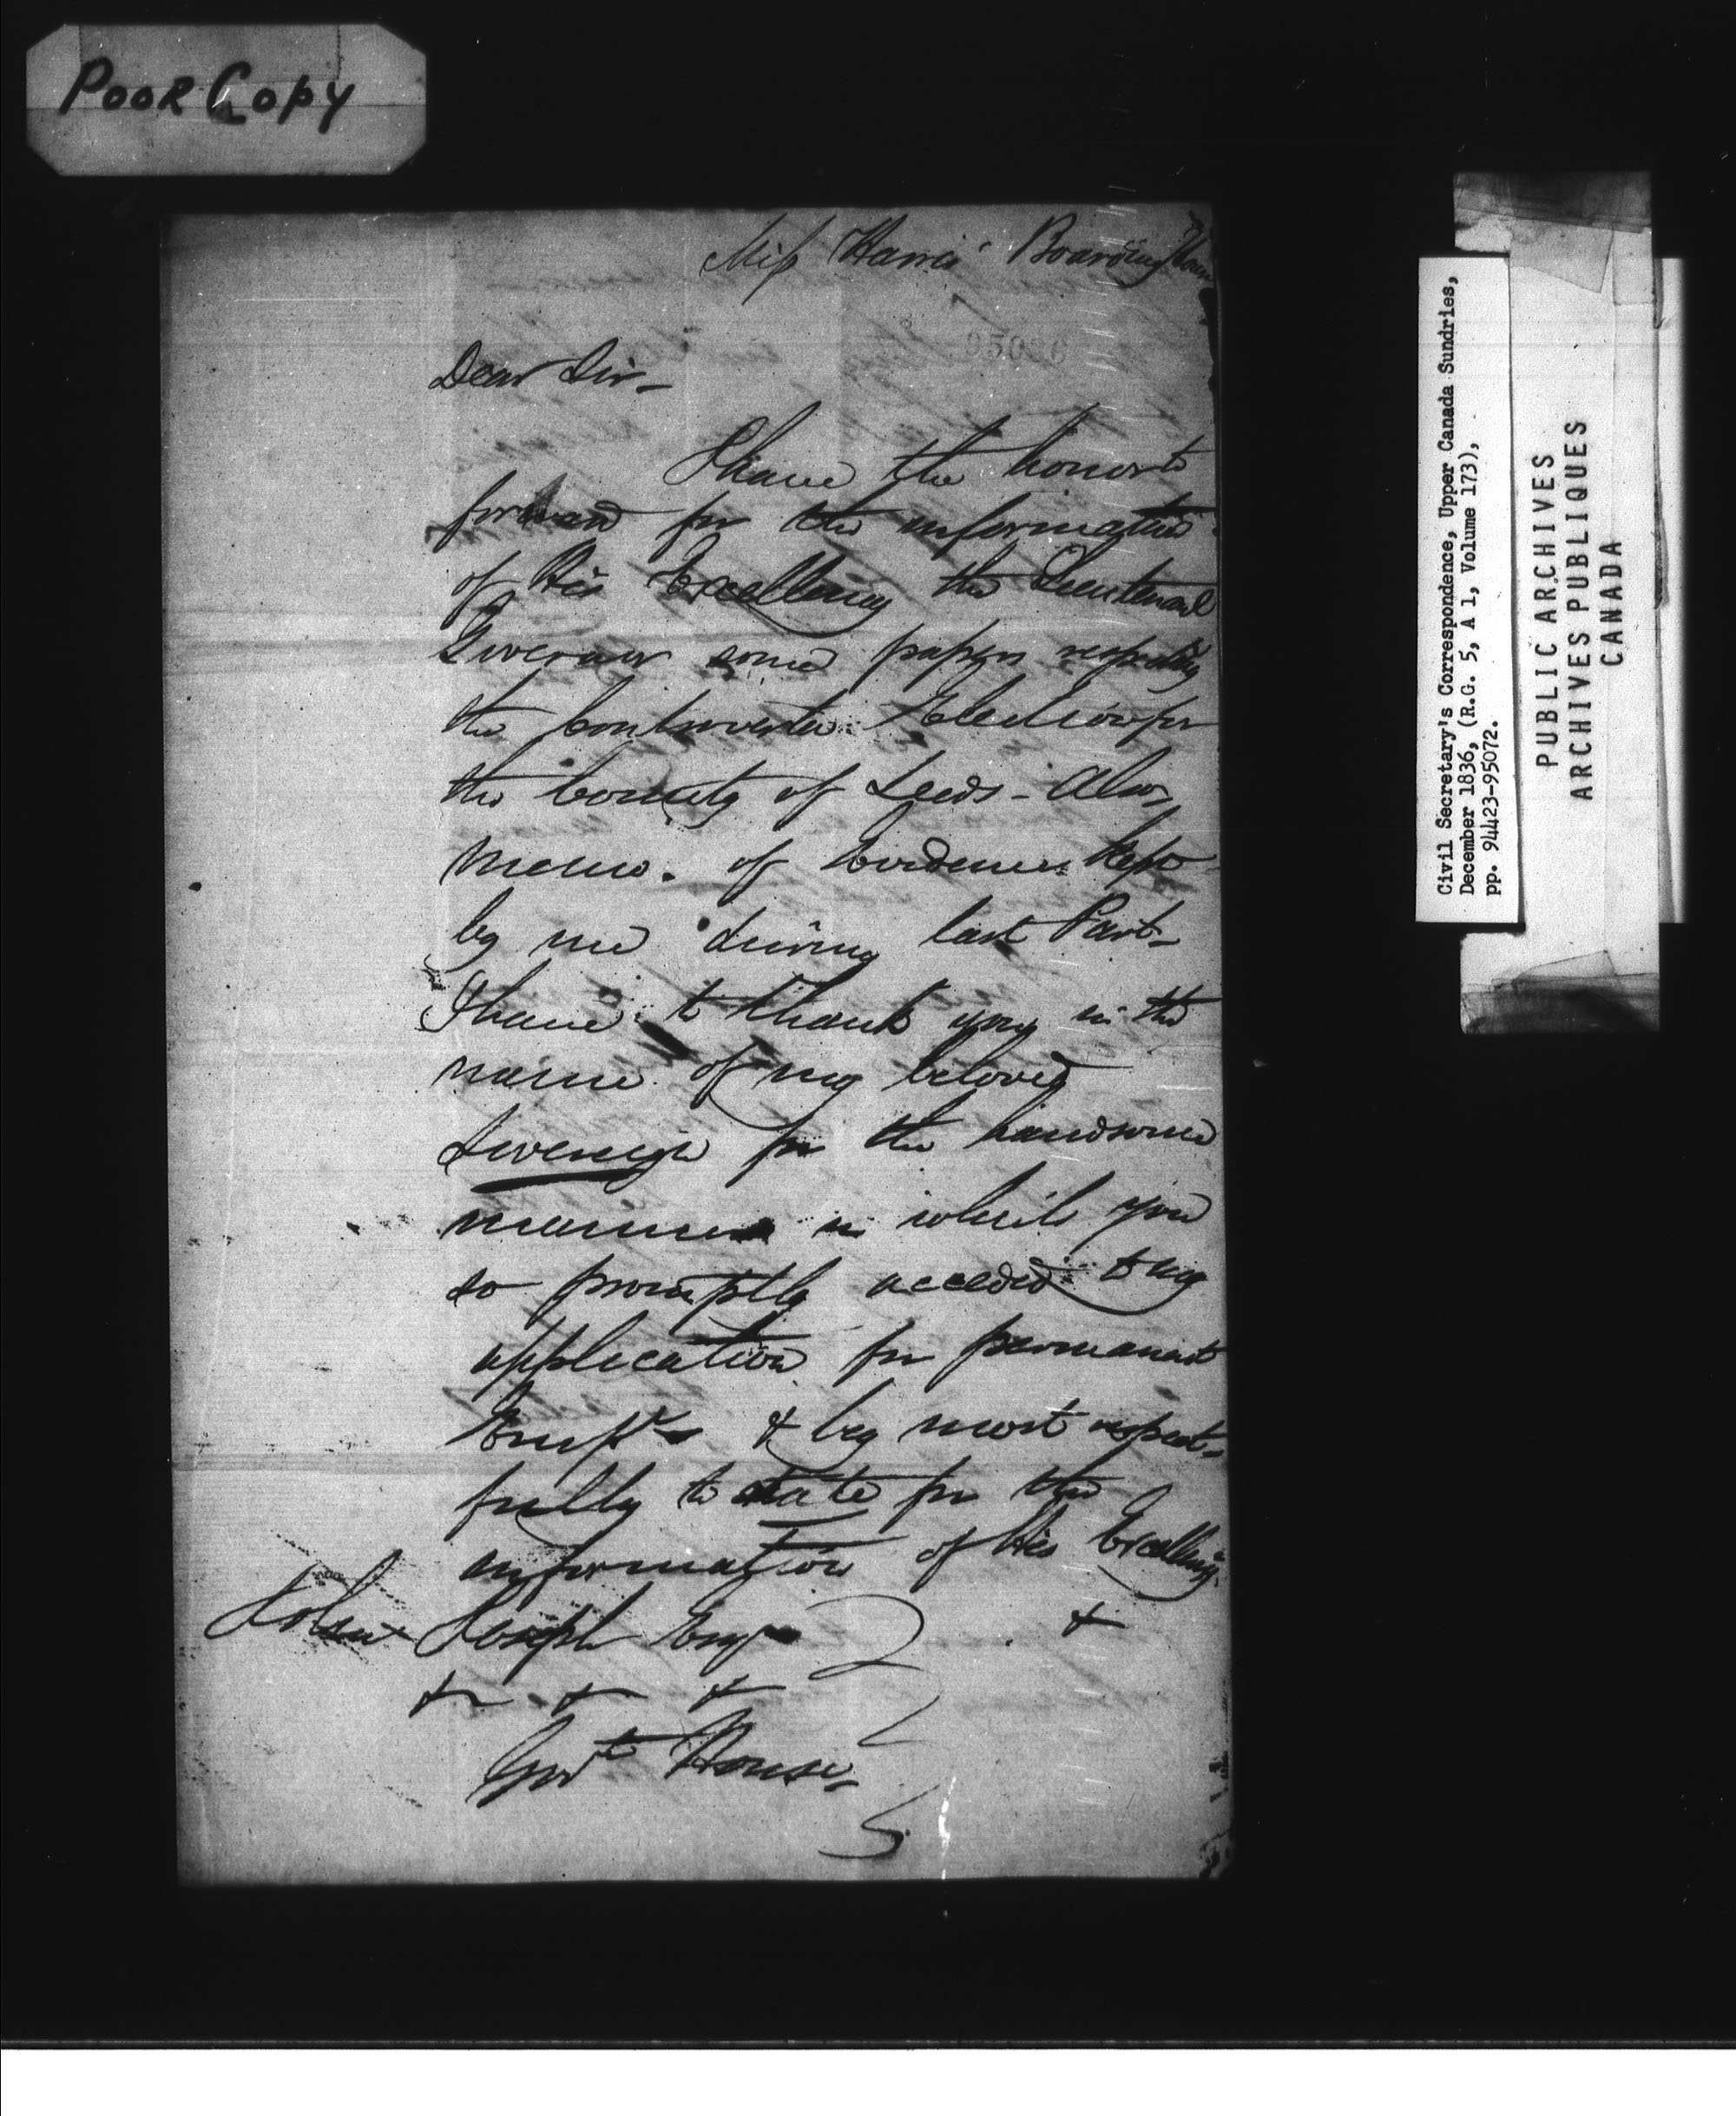 POOR COPY
Miss Harris' Boarding House
95026
Dear Sir-
I have the honor to
forward for the information
of His Excellency the Lieutenant
Governor some papers respecting
the Controverted Election for
the County of Leeds - Also,
Memo. of Evidence kept
by me during last Parlt-
I have to thank you in the
name of my beloved
Sovereign for the handsome
manner in which you
so promptly acceded to my
application for permanent
& beg most respect-
fully to state for the
information of His Excellency
&
Joseph Esqr
& & &
Govt House-
Civil Secretary's Correspondence, Upper Canada Sundries,
December 1836, (R.G. 5, A 1, Volume 173),
pp. 94423-95072.
PUBLIC ARCHIVES
ARCHIVES PUBLIQUES
CANADA